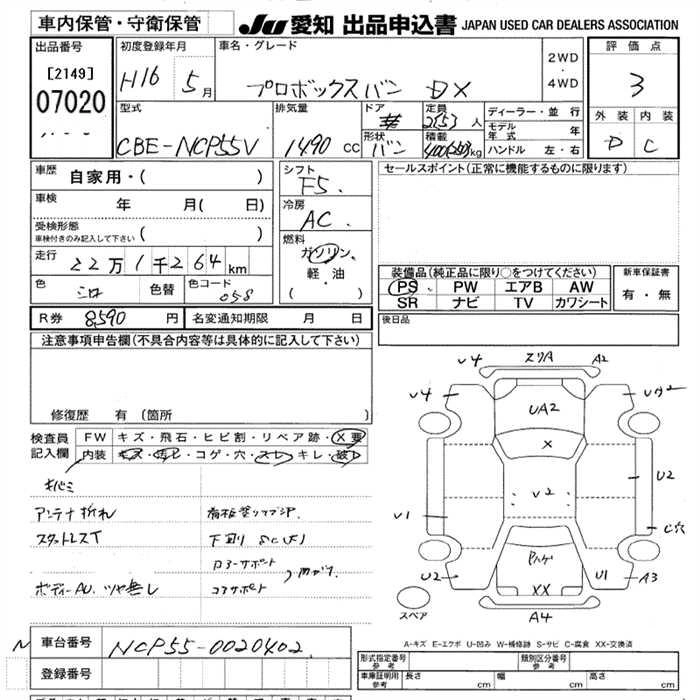 車内保管・守衛保管
JU 愛知 出品申込書 JAPAN USED CAR DEALERS ASSOCIATION
出品番号
[2149]
07020
初度登録年月
H16 5月
車名・グレード
プロボックスバン DX
2WD
・
4WD
評価点
3
型式
CBE-NCP55V
排気量
1490 cc
ドア
形状
バン
定員
人
積載
kg
ディーラー・並行
モデル年式 年
ハンドル 左・右
外装 内装
D C
車歴
自家用・( )
車検
年 月( 日)
受検形態
車検付きのみ記入して下さい ( )
走行
22万1千264km
色
シロ
色替
色コード
058
シフト
F5
冷房
AC
燃料
ガソリン
軽油
( )
セールスポイント(正常に機能するものに限ります)
装備品(純正品に限り○をつけてください)
PS PW エアB AW
SR ナビ TV カワシート
新車保証書
有・無
R券 8590 円
名変通知期限 月 日
後日品
注意事項申告欄(不具合内容等は具体的に記入して下さい)
修復歴 有(箇所
検査員記入欄
FW キズ・飛石・ヒビ割・リペア跡・X要
内装 キズ・汚レ・コゲ・穴・スレ・キレ・破レ
キバミ
アンテナ折れ
スタットレスT
下回りSC(F)
コアサポート
ボディーAU、ツヤ無し
コアサポート
曲がり
U4 エクリA A2
U4 UA2 UA2
X
U2 U2
U1 C穴
U2 XX U1 A3
A4
スペア
A-キズ E-エクボ U-凹み W-補修跡 S-サビ C-腐食 XX-交換済
N 車台番号 NCP55-0020402
登録番号
形式指定番号
参考
類別区分番号
参考
車庫証明用
参考
長さ cm 幅 cm 高さ cm